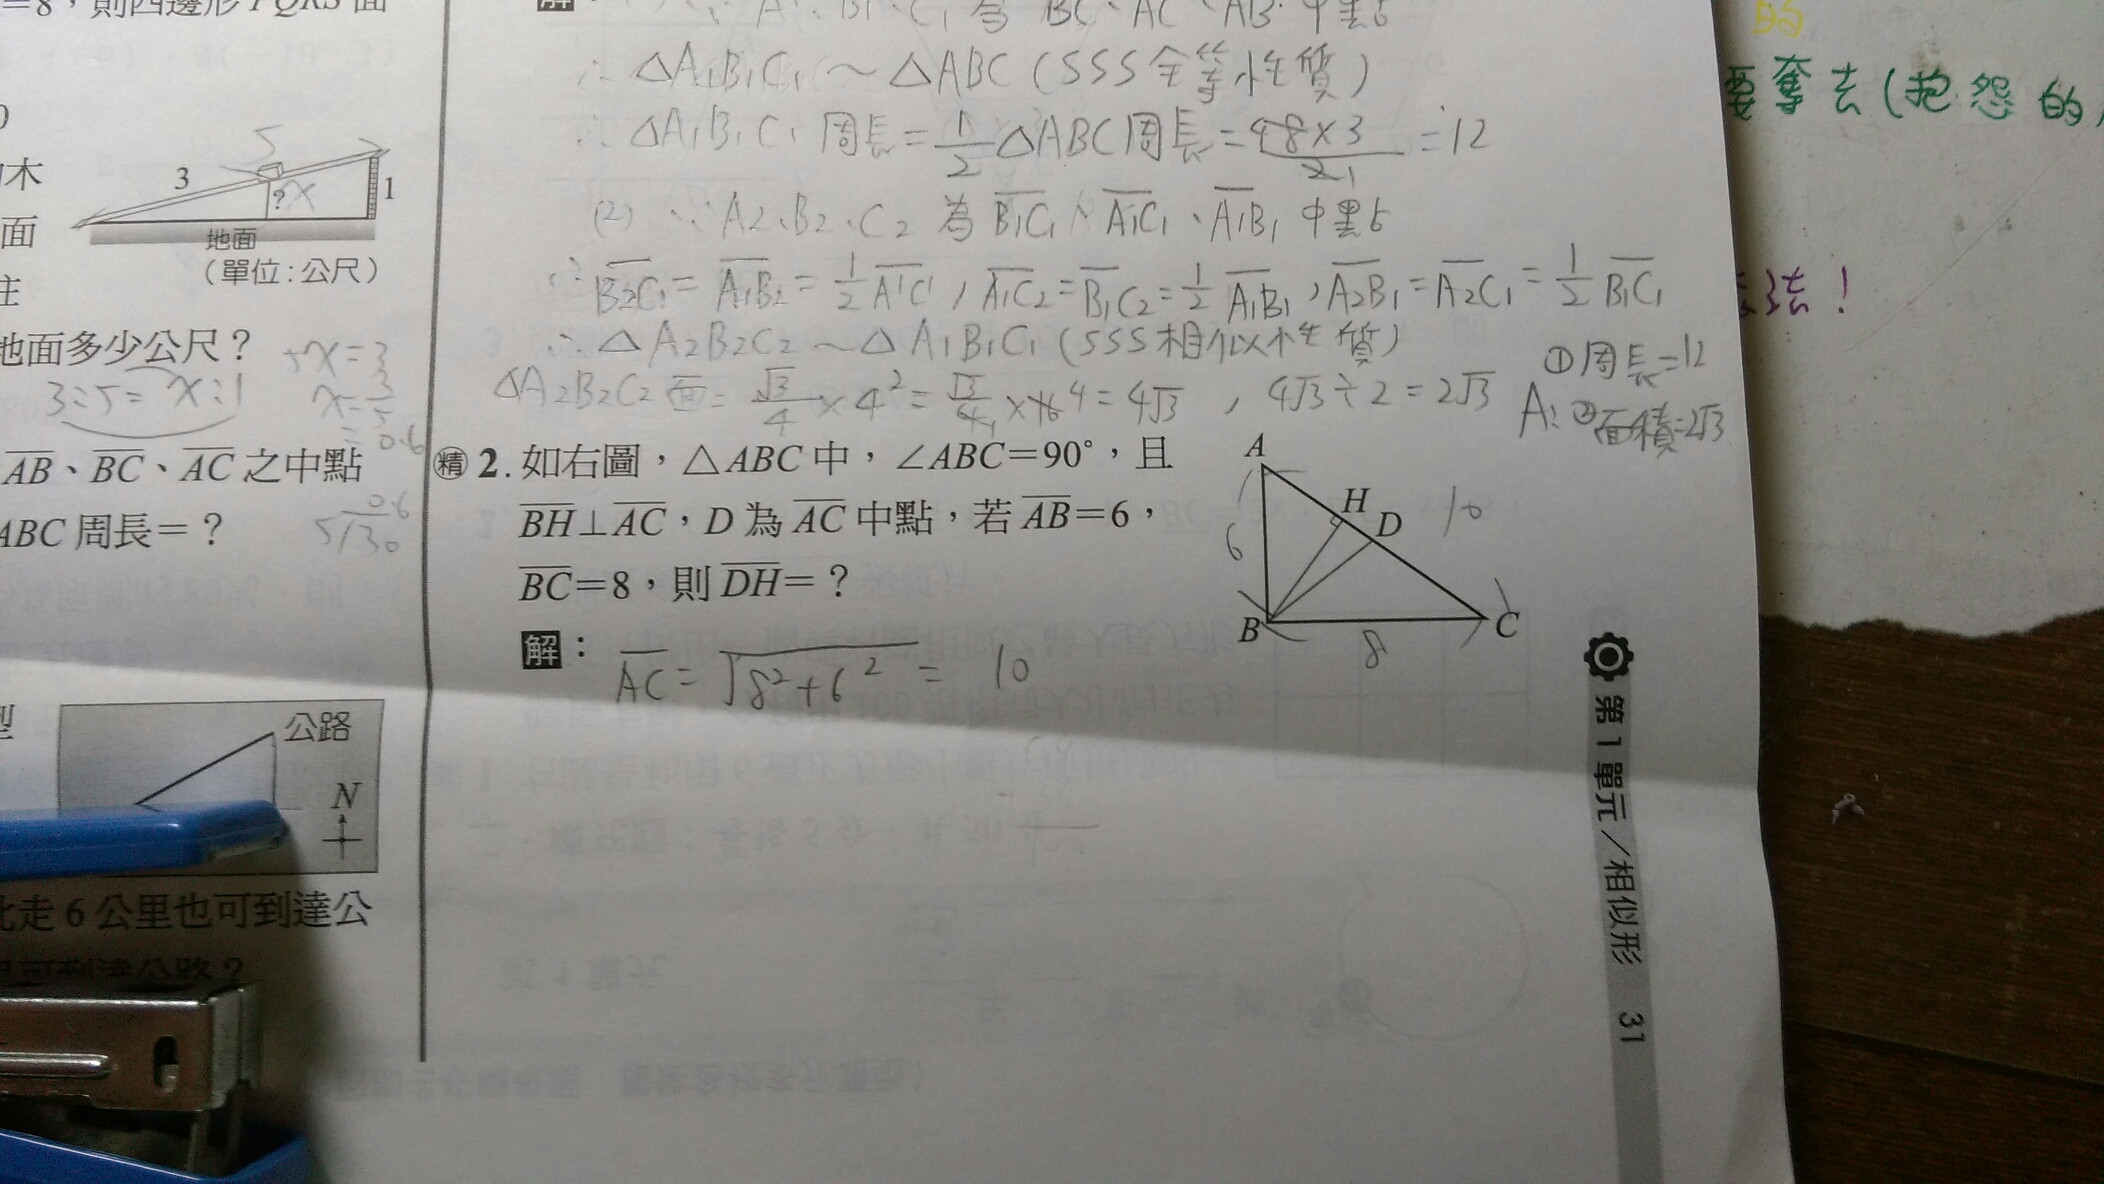 =8，則四邊形PQRS面
3
5
?
x
1
地面
（單位:公尺）
地面多少公尺？
3:5=x:1
5x=3
x=3/5
=0.6
AB、BC、AC之中點
ABC周長=？
0.6
5/30
公路
N
北走6公里也可到達公
解
A1、B1、C1為BC、AC、AB中點
∴ △A1B1C1～△ABC(SSS全等性質)
∴ △A1B1C1周長=1/2△ABC周長=48×3/21=12
(2) ∵A2、B2、C2為B1C1、A1C1、A1B1中點
∴ B2C1=A1B2=1/2A1C1，A1C2=B1C2=1/2A1B1，A2B1=A2C1=1/2B1C1
∴△A2B2C2～△A1B1C1(SSS相似性質)
△A2B2C2面=√3/4×4²=√3/41×16 4=4√3，4√3÷2=2√3
①周長=12
A:②面積=2√3
精 2.如右圖，△ABC中，∠ABC=90°，且
BH⊥AC，D為AC中點，若AB=6，
BC=8，則DH=？
解：
AC=√8²+6²=10
A
H
D
B
C
6
10
8
第1單元／相似形 31
的
要奪去(抱怨的
！